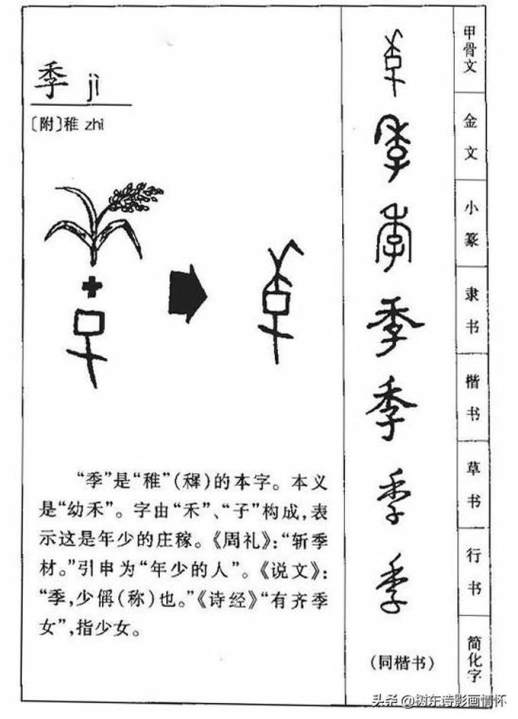 季 jì
〔附〕稚 zhì
“季”是“稚”(稺)的本字。本义
是“幼禾”。字由“禾”、“子”构成,表
示这是年少的庄稼。《周礼》:“斩季
材。”引申为“年少的人”。《说文》:
“季,少偁(称)也。”《诗经》“有齐季
女”,指少女。
甲骨文
季 金文
季 小篆
季 隶书
季 楷书
季 草书
季 行书
(同楷书) 简化字
头条 @树东诗影画情怀